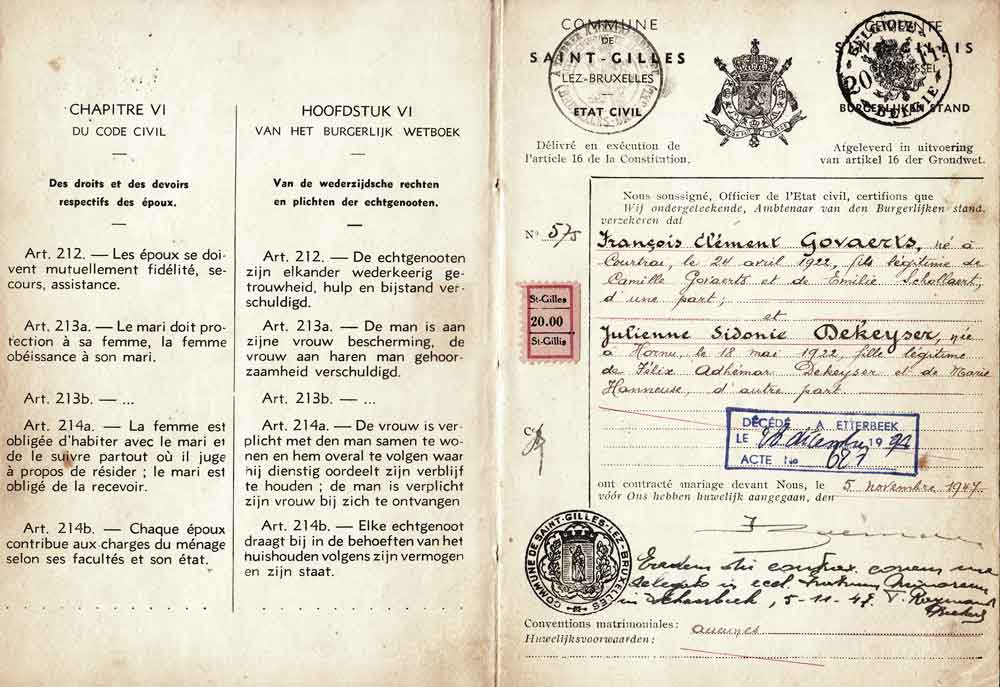 CHAPITRE VI
DU CODE CIVIL
Des droits et des devoirs
respectifs des époux.
Art. 212. — Les époux se doi-
vent mutuellement fidélité, se-
cours, assistance.
Art. 213a. — Le mari doit pro-
tection à sa femme, la femme
obéissance à son mari.
Art. 213b. — ...
Art. 214a. — La femme est
obligée d'habiter avec le mari et
de le suivre partout où il juge
à propos de résider ; le mari est
obligé de la recevoir.
Art. 214b. — Chaque époux
contribue aux charges du ménage
selon ses facultés et son état.
HOOFDSTUK VI
VAN HET BURGERLIJK WETBOEK
Van de wederzijdsche rechten
en plichten der echtgenooten.
Art. 212. — De echtgenooten
zijn elkander wederkeerig ge-
trouwheid, hulp en bijstand ver-
schuldigd.
Art. 213a. — De man is aan
zijne vrouw bescherming, de
vrouw aan haren man gehoor-
zaamheid verschuldigd.
Art. 213b. — ...
Art. 214a. — De vrouw is ver-
plicht met den man samen te wo-
nen en hem overal te volgen waar
hij dienstig oordeelt zijn verblijf
te houden ; de man is verplicht
zijn vrouw bij zich te ontvangen
Art. 214b. — Elke echtgenoot
draagt bij in de behoeften van het
huishouden volgens zijn vermogen
en zijn staat.
COMMUNE
DE
SAINT-GILLES
LEZ-BRUXELLES
ETAT CIVIL
Délivré en exécution de
l'article 16 de la Constitution.
GEMEENTE
BURGERLIJKEN STAND
BELGIQUE
20
BELGIE
Afgeleverd in uitvoering
van artikel 16 der Grondwet.
Nous soussigné, Officier de l'Etat civil, certifions que
Wij ondergeteekende, Ambtenaar van den Burgerlijken stand
verzekeren dat
N° 575
François Clément Govaerts, né à
Courtrai, le 24 avril 1922, fils légitime de
Camille Govaerts et de Emilie Schollaert,
d'une part;
et
Julienne Sidonie Dekeyser, née
à Hornu, le 18 mai 1922, fille légitime
de Félix Adhémar Dekeyser et de Marie
Hanneuse, d'autre part
St-Gilles
20.00
St-Gillis
DÉCÉDÉ A ETTERBEEK
LE 19
ACTE No 687
ont contracté mariage devant Nous, le 5 novembre 1947
vóór Ons hebben huwelijk aangegaan, den
COMMUNE DE SAINT-GILLES-LEZ-BRUXELLES
Eadem die
in Schaerbeek, 5-11-47
Conventions matrimoniales :
Huwelijksvoorwaarden :